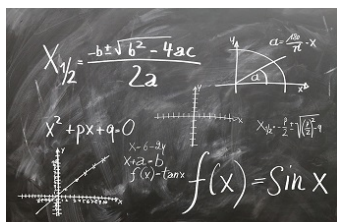 X₁/₂ = -b ± √b² - 4ac / 2a
y
a = 180/π · x
a
x
x² + px + q = 0
y
x
X₁/₂ = -p/2 ± √(p/2)² - q
x - 6 - 2y
x + a - b
f(x) = tan x
f(x) = Sin x